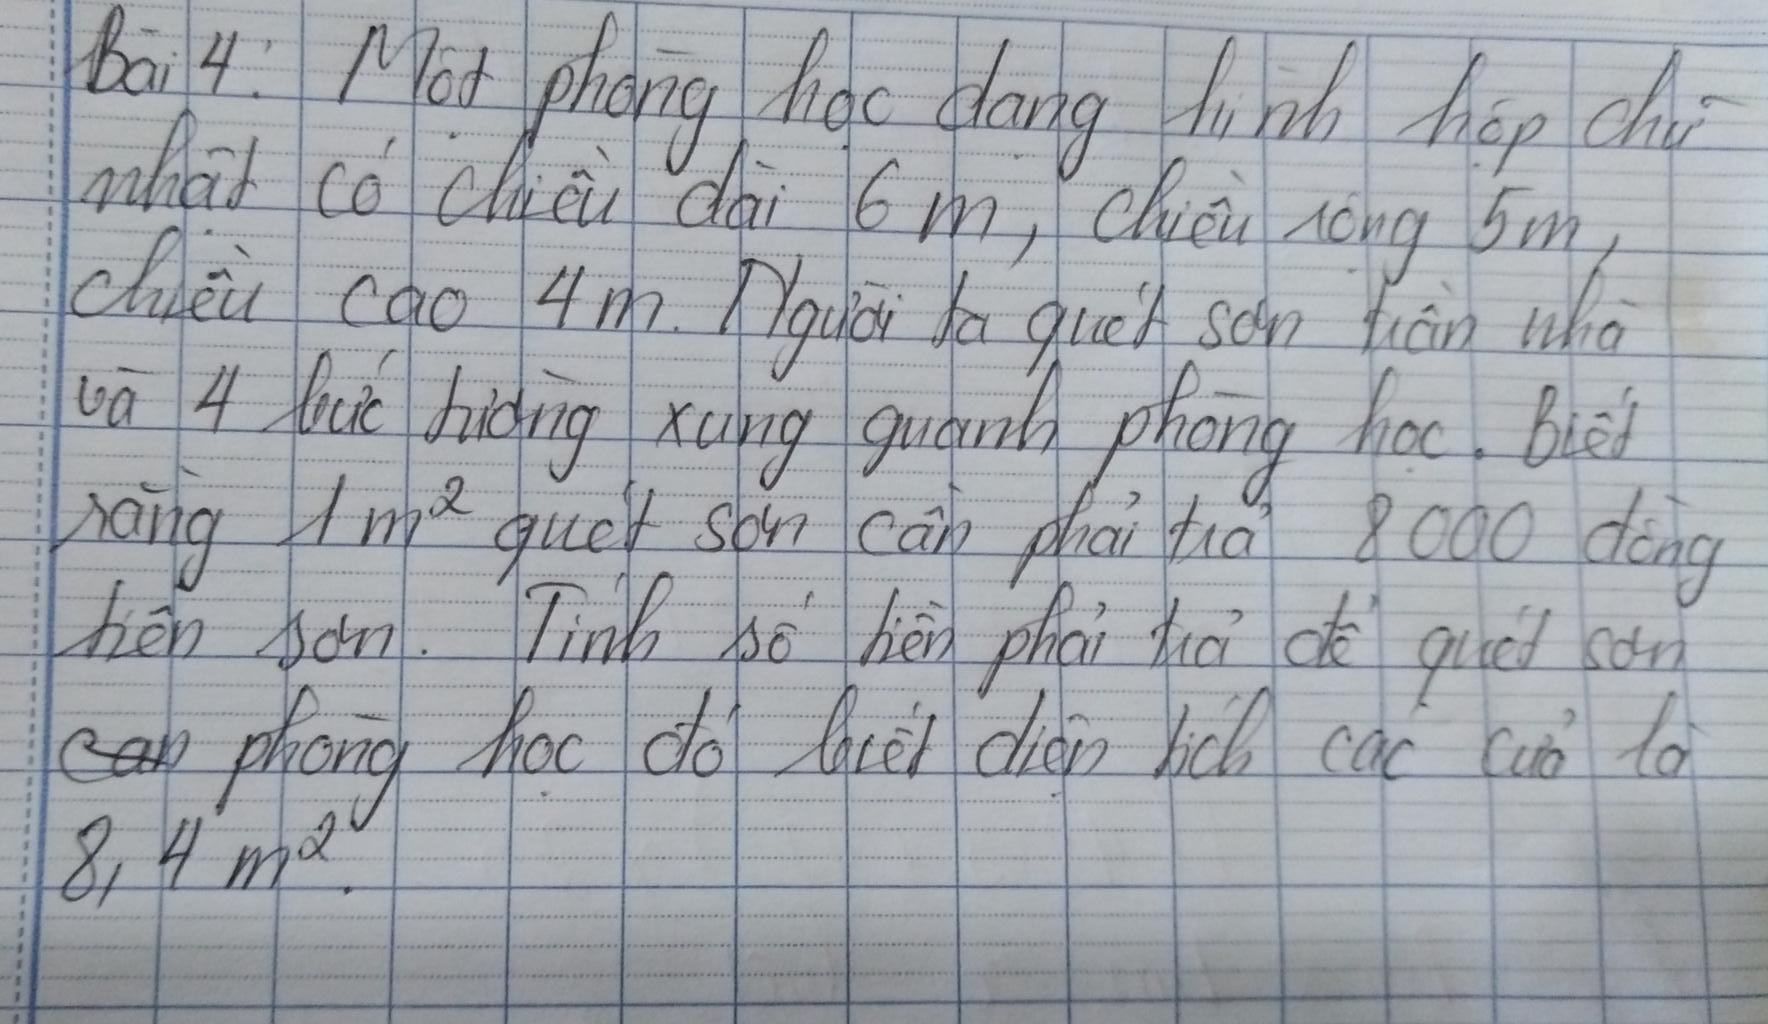 Bài 4: Một phòng học dạng hình hộp chữ
nhật có chiều dài 6 m, chiều rộng 5m,
chiều cao 4m. Người ta quét sơn trần nhà
và 4 bức tường xung quanh phòng học. Biết
rằng 1m² quét sơn cần phải trả 8000 đồng
tiền sơn. Tính số tiền phải trả để quét sơn
phòng học đó biết diện tích các cửa là
8,4 m².